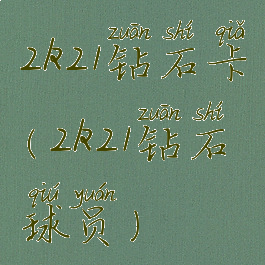 zuān shí qiǎ
2k21钻石卡
zuān shí
(2k21钻石
qiú yuán
球员)